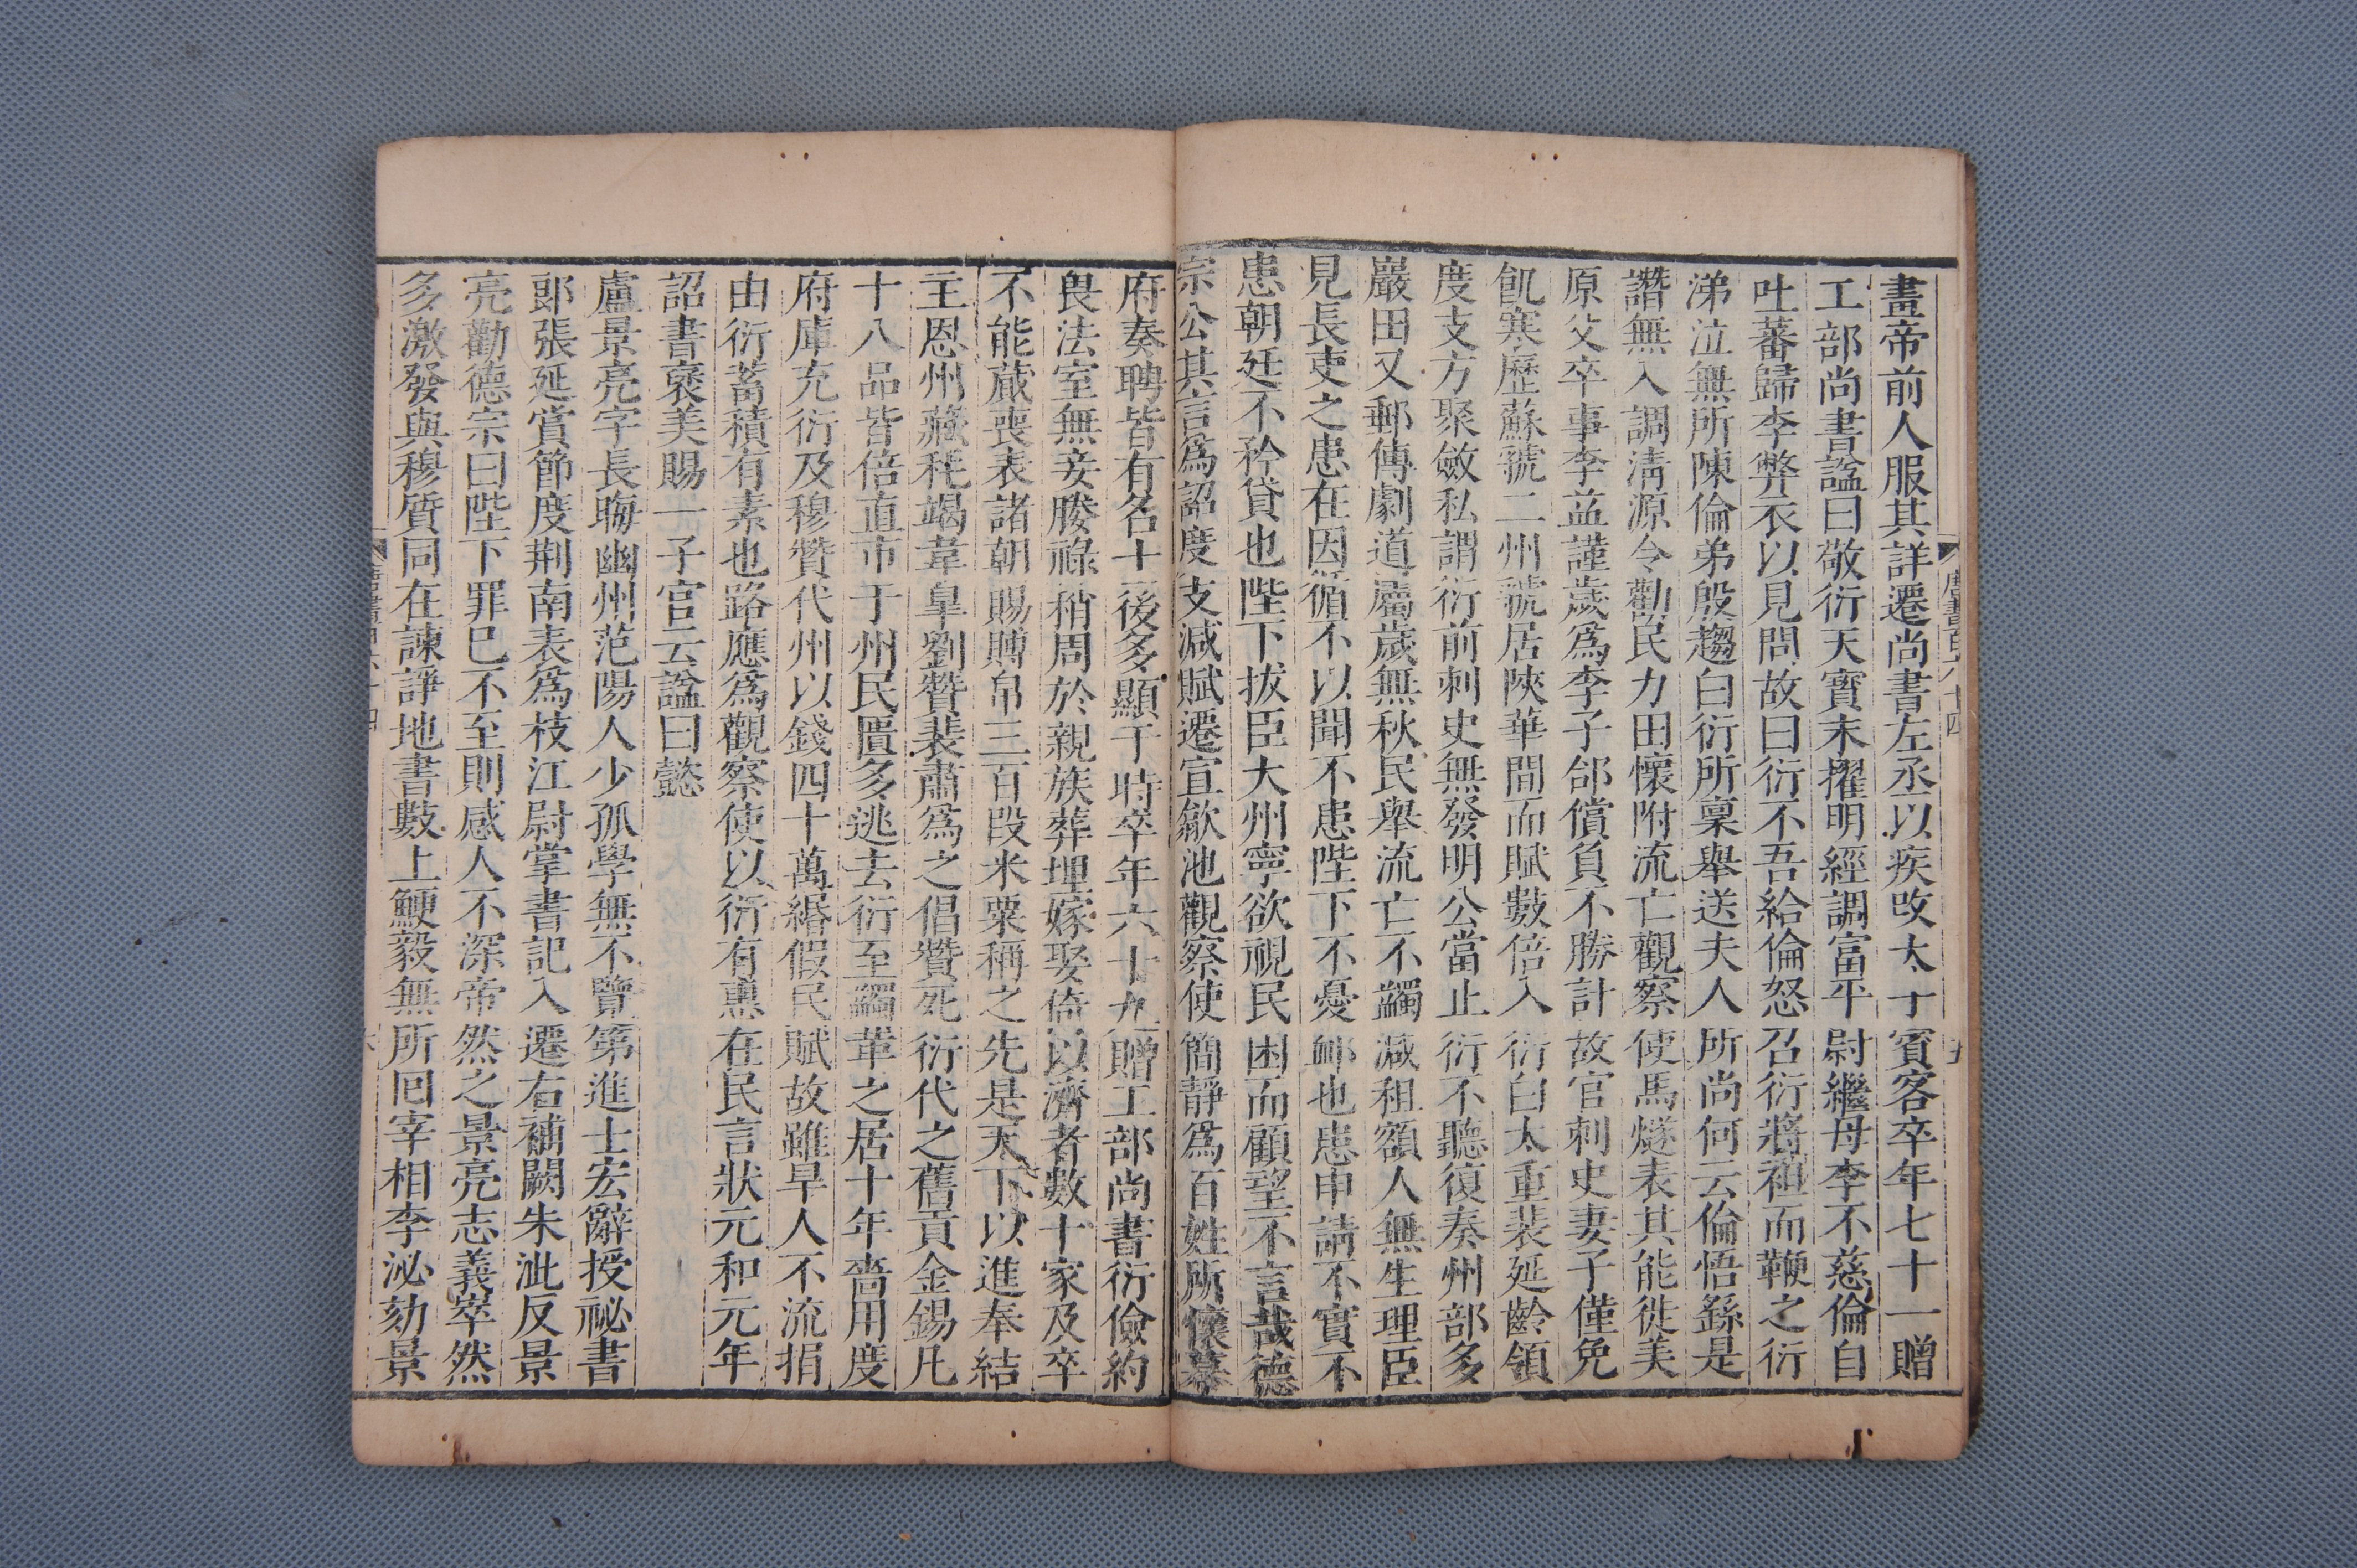 畫帝前人服其詳遷尚書左丞以疾改太子賓客卒年七十一贈
工部尚書謚曰敬衍天寶末擢明經調富平尉繼母李不慈倫自
吐蕃歸李弊衣以見問故曰衍不吾給倫怒召衍將袒而鞭之衍
涕泣無所陳倫弟殷趨白衍所稟舉送夫人所尚何云倫悟繇是
譖無入調淸源令勸民力田懷附流亡觀察使馬燧表其能徙美
原父卒事李益謹歲爲李子郃償負不勝計故官刺史妻子僅免
飢寒歷蘇虢二州虢居陝華間而賦數倍入衍白太重裴延齡領
度支方聚斂私謂衍前刺史無發明公當止衍不聽復奏州部多
巖田又郵傳劇道屬歲無秋民舉流亡不蠲減租額人無生理臣
見長吏之患在因循不以聞不患陛下不憂䘏也患申請不實不
患朝廷不矜貸也陛下拔臣大州寧欲視民困而顧望不言哉德
宗公其言爲詔度支減賦遷宣歙池觀察使簡靜爲百姓所懷幕
府奏聘皆有名士後多顯于時卒年六十九贈工部尚書衍儉約
畏法室無妾媵祿稍周於親族葬埋嫁娶倚以濟者數十家及卒
不能蕆喪表諸朝賜賻帛三百段米粟稱之先是天下以進奉結
主恩州藏耗竭韋臯劉贊裴肅爲之倡贊死衍代之舊貢金錫凡
十八品皆倍直市于州民匱多逃去衍至蠲革之居十年嗇用度
府庫充衍及穆贊代州以錢四十萬緡假民賦故雖旱人不流捐
由衍蓄積有素也路應爲觀察使以衍有惠在民言狀元和元年
詔書褒美賜一子官云謚曰懿
盧景亮字長晦幽州范陽人少孤學無不覽第進士宏辭授祕書
郞張延賞節度荆南表爲枝江尉掌書記入遷右補闕朱泚反景
亮勸德宗曰陛下罪巳不至則感人不深帝然之景亮志義崒然
多激發與穆質同在諫諍地書數上鯁毅無所回宰相李泌劾景
唐書百六十四